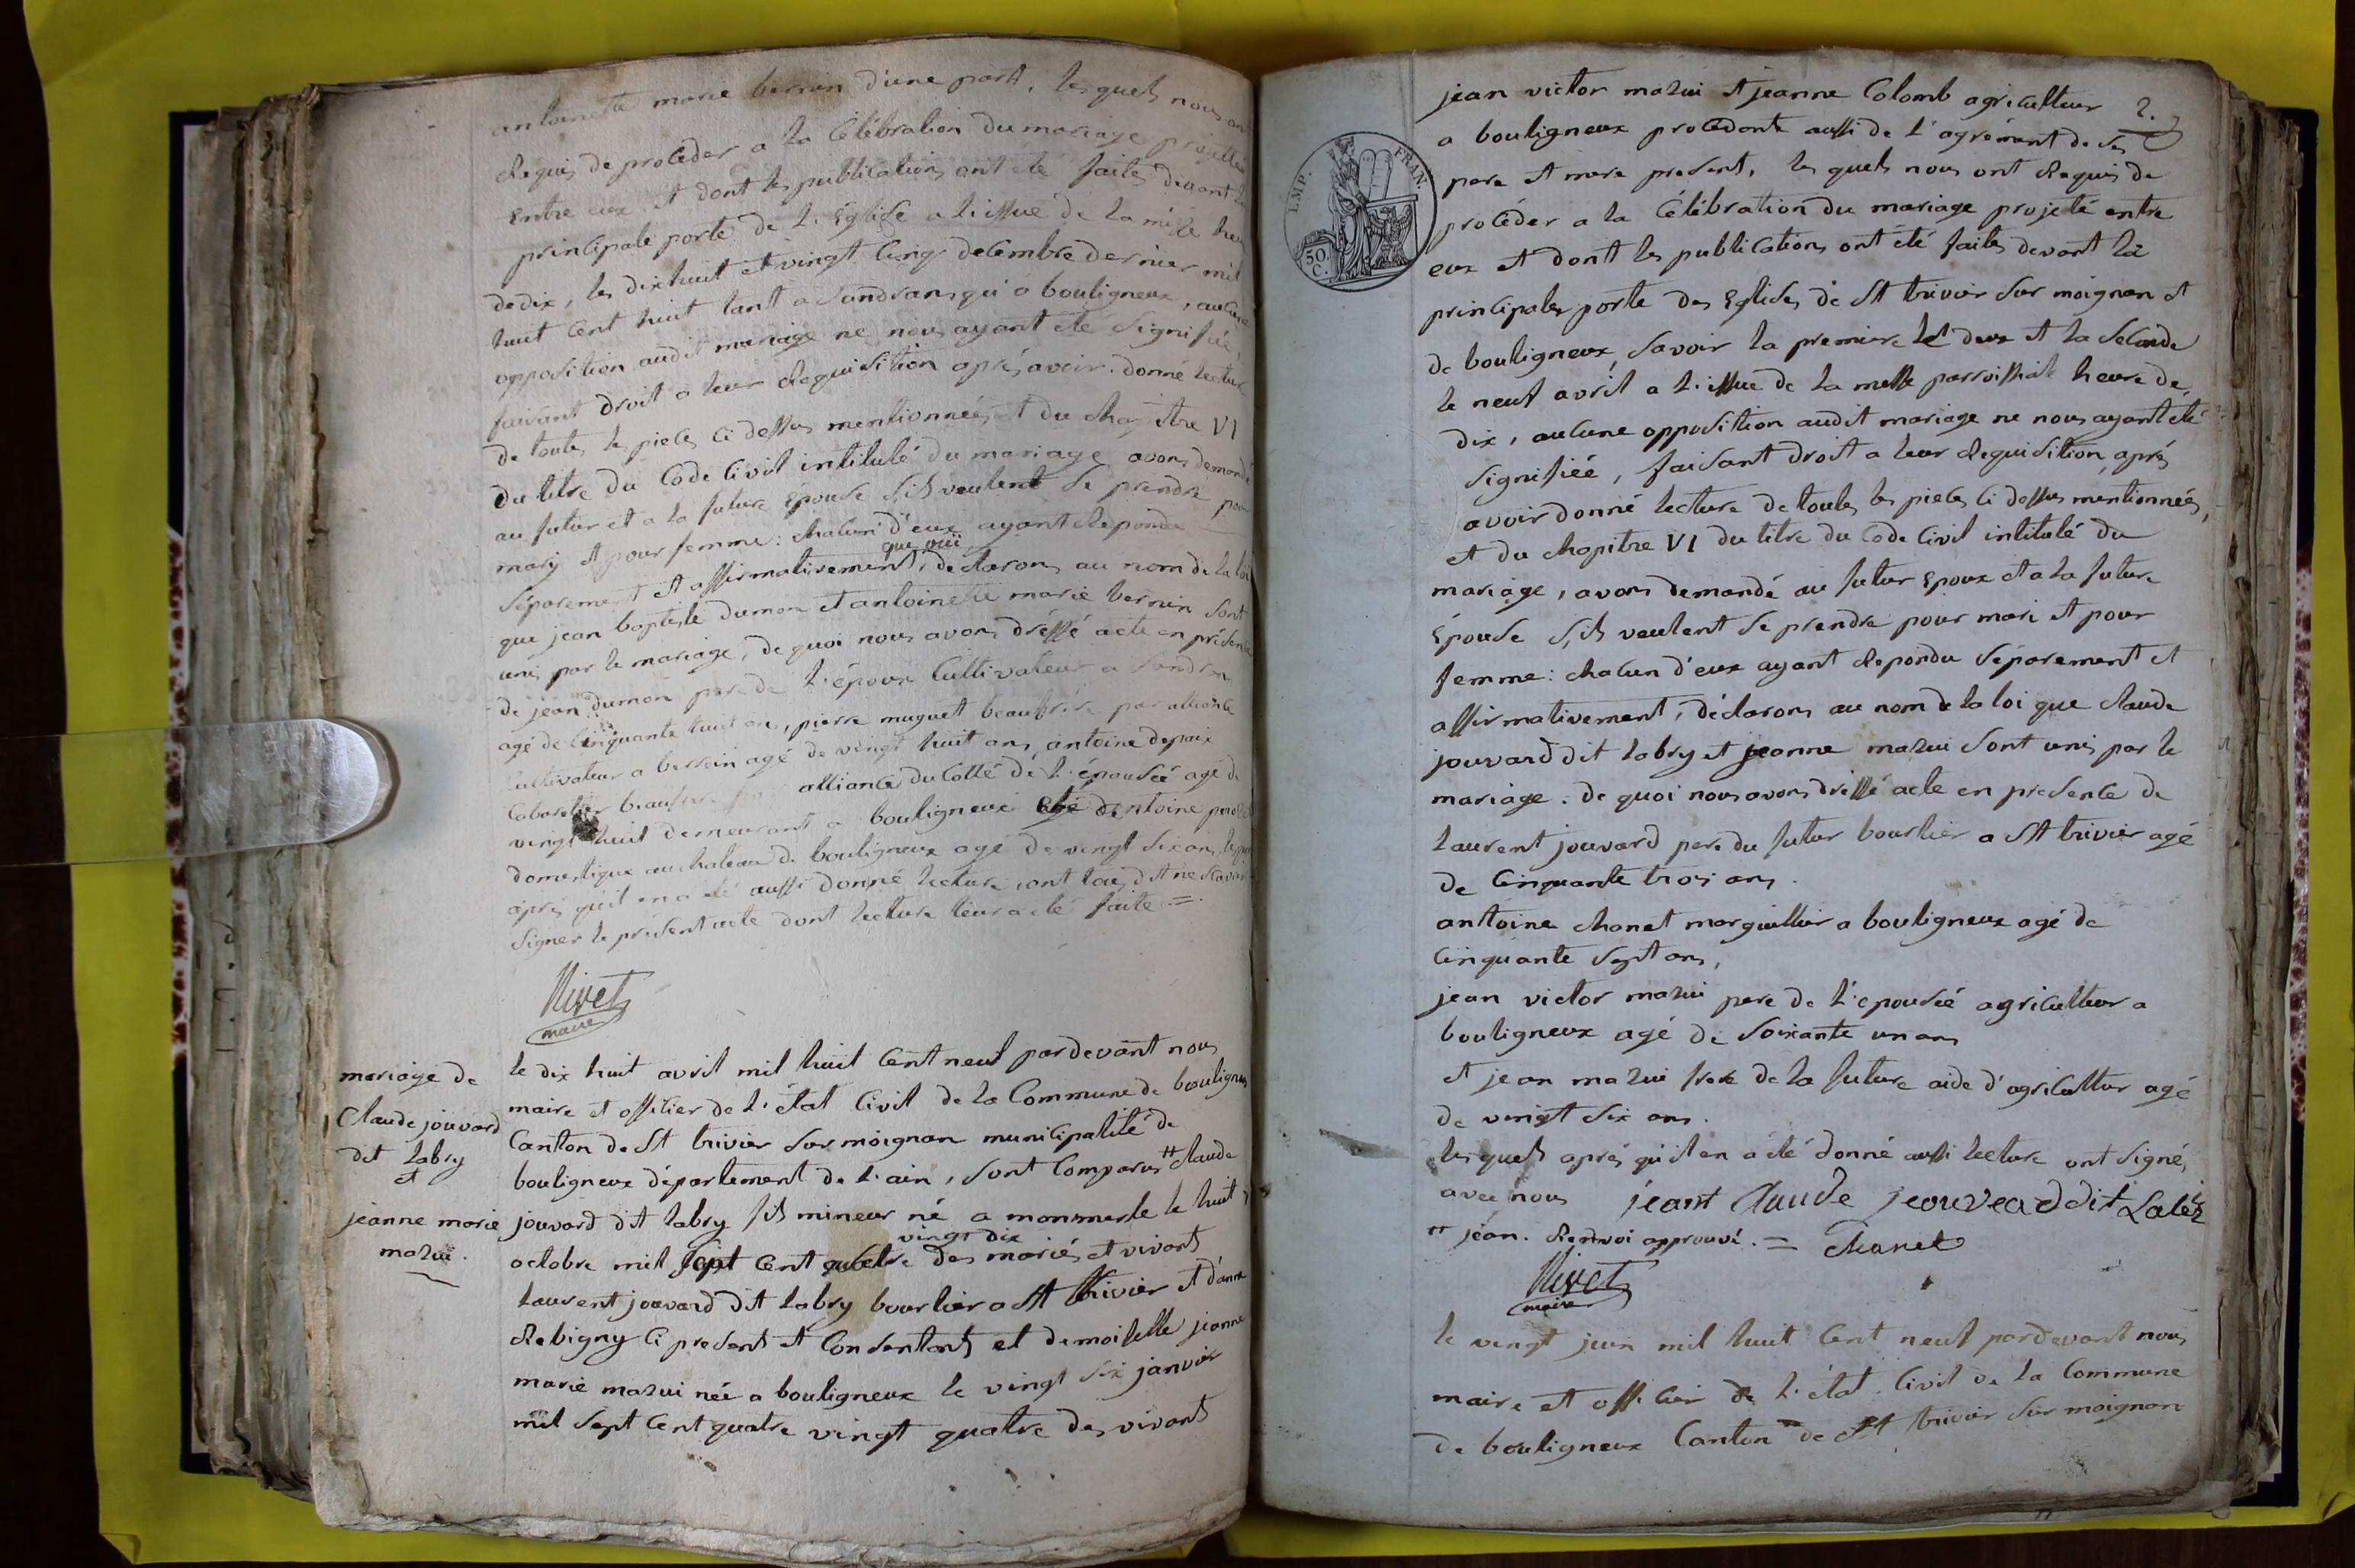 antoinette marie bernin d'une part, les quels nous ont
Requis de proceder a la Célébration du mariage projetté
entre eux et dont les publications ont été faites devant la
principale porte de L'Église a L'issue de la messe heure
de dix, les dix huit et vingt Cinq decembre dernier mil
huit Cent huit tant a Sandrans qu'a bouligneux, aucune
opposition audit mariage ne nous ayant été Signifiée,
faisant droit a leur Requisition après avoir donné lecture
de toutes les pieces Ci dessus mentionnées et du chapitre VI
du titre du Code Civil intitulé du mariage avons demandé
au futur et a la future Épouse S'ils veulent Se prendre pour
mary et pour femme : chacun d'eux ayant Repondu
que ouï
Séparement et affirmativement, declarons au nom de la loi
que jean baptiste dumon et antoinette marie bernin Sont
unis par le mariage, de quoi nous avons dressé acte en présence
de jean dumon pere de L'époux Cultivateur a Sandrans
agé de Cinquante huit ans, pierre muguet beaufrère par alliance
Cultivateur a agé de vingt huit ans, antoine depaix
Cabaretier beaufrere par alliance du Cotté de L'épousée agé de
vingt huit demeurant a bouligneux et antoine
domestique au chateau de bouligneux agé de vingt Six ans, lesquels
après qu'il en a été aussi donné lecture, ont tous dit ne Scavoir
Signer le présent acte dont lecture leur a été faite =.
Rivet
maire
mariage de
Claude jouvard
dit Labry
et
jeanne marie
mazui.
le dix huit avril mil huit Cent neuf pardevant nous
maire et officier de L'état Civil de la Commune de bouligneux
Canton de St trivier Sur moignan municipalité de
bouligneux département de L'ain, Sont Comparus ++ Claude
jouvard dit Labry fils mineur né a monmerle le huit
vingt dix
octobre mil Sept Cent quatre des mariés et vivants
Laurent jouvard dit Labry bourlier a St trivier et d'anne
Rebigny Ci presents et Consentants et demoiselle jeanne
marie mazui née a bouligneux le vingt Six janvier
mil Sept Cent quatre vingt quatre des vivants
jean victor mazui et jeanne Colomb agriculteur
2.
a bouligneux procedante aussi de L'agrément de Ses
pere et mere present, les quels nous ont Requis de
procéder a la Célébration du mariage projeté entre
eux et dont les publications ont été faites devant la
principales porte des Eglises de St trivier Sur moignan et
de bouligneux, Savoir la premiere le deux et la Seconde
le neuf avril a L'issue de la messe parroissiale heure de
dix, aucune opposition audit mariage ne nous ayant été
Signifiée, faisant droit a leur Requisition, après
avoir donné lecture de toutes les pieces Ci dessus mentionnées,
et du chapitre VI du titre du Code Civil intitulé du
mariage, avons demandé au futur Epoux et a la future
Épouse S'ils veulent Se prendre pour mari et pour
femme : chacun d'eux ayant Repondu Séparement et
affirmativement, déclarons au nom de la loi que Claude
jouvard dit Labry et jeanne mazui Sont unis par le
mariage. De quoi nous avons dressé acte en presence de
Laurent jouvard pere du futur bourlier a St trivier agé
de Cinquante trois ans.
antoine chanet marguillier a bouligneux agé de
Cinquante Sept ans,
jean victor mazui pere de L'epousée agriculteur a
bouligneux agé de Soixante un ans
et jean mazui frere de la future aide d'agriculteur agé
de vingt Six ans.
les quels après qu'il en a été donné aussi lecture ont Signé,
avec nous jeant Claude jeouvead dit Labri
++ jean. Renvoi approuvé. = Chanet
Rivet
maire
le vingt juin mil huit Cent neuf pardevant nous
maire et officier de L'état Civil de la Commune
de bouligneux Canton de St trivier Sur moignan
EMP. FRAN.
50 C.